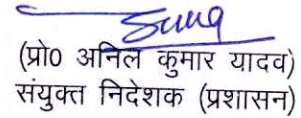 (प्रो0 अनिल कुमार यादव)
संयुक्त निदेशक (प्रशासन)